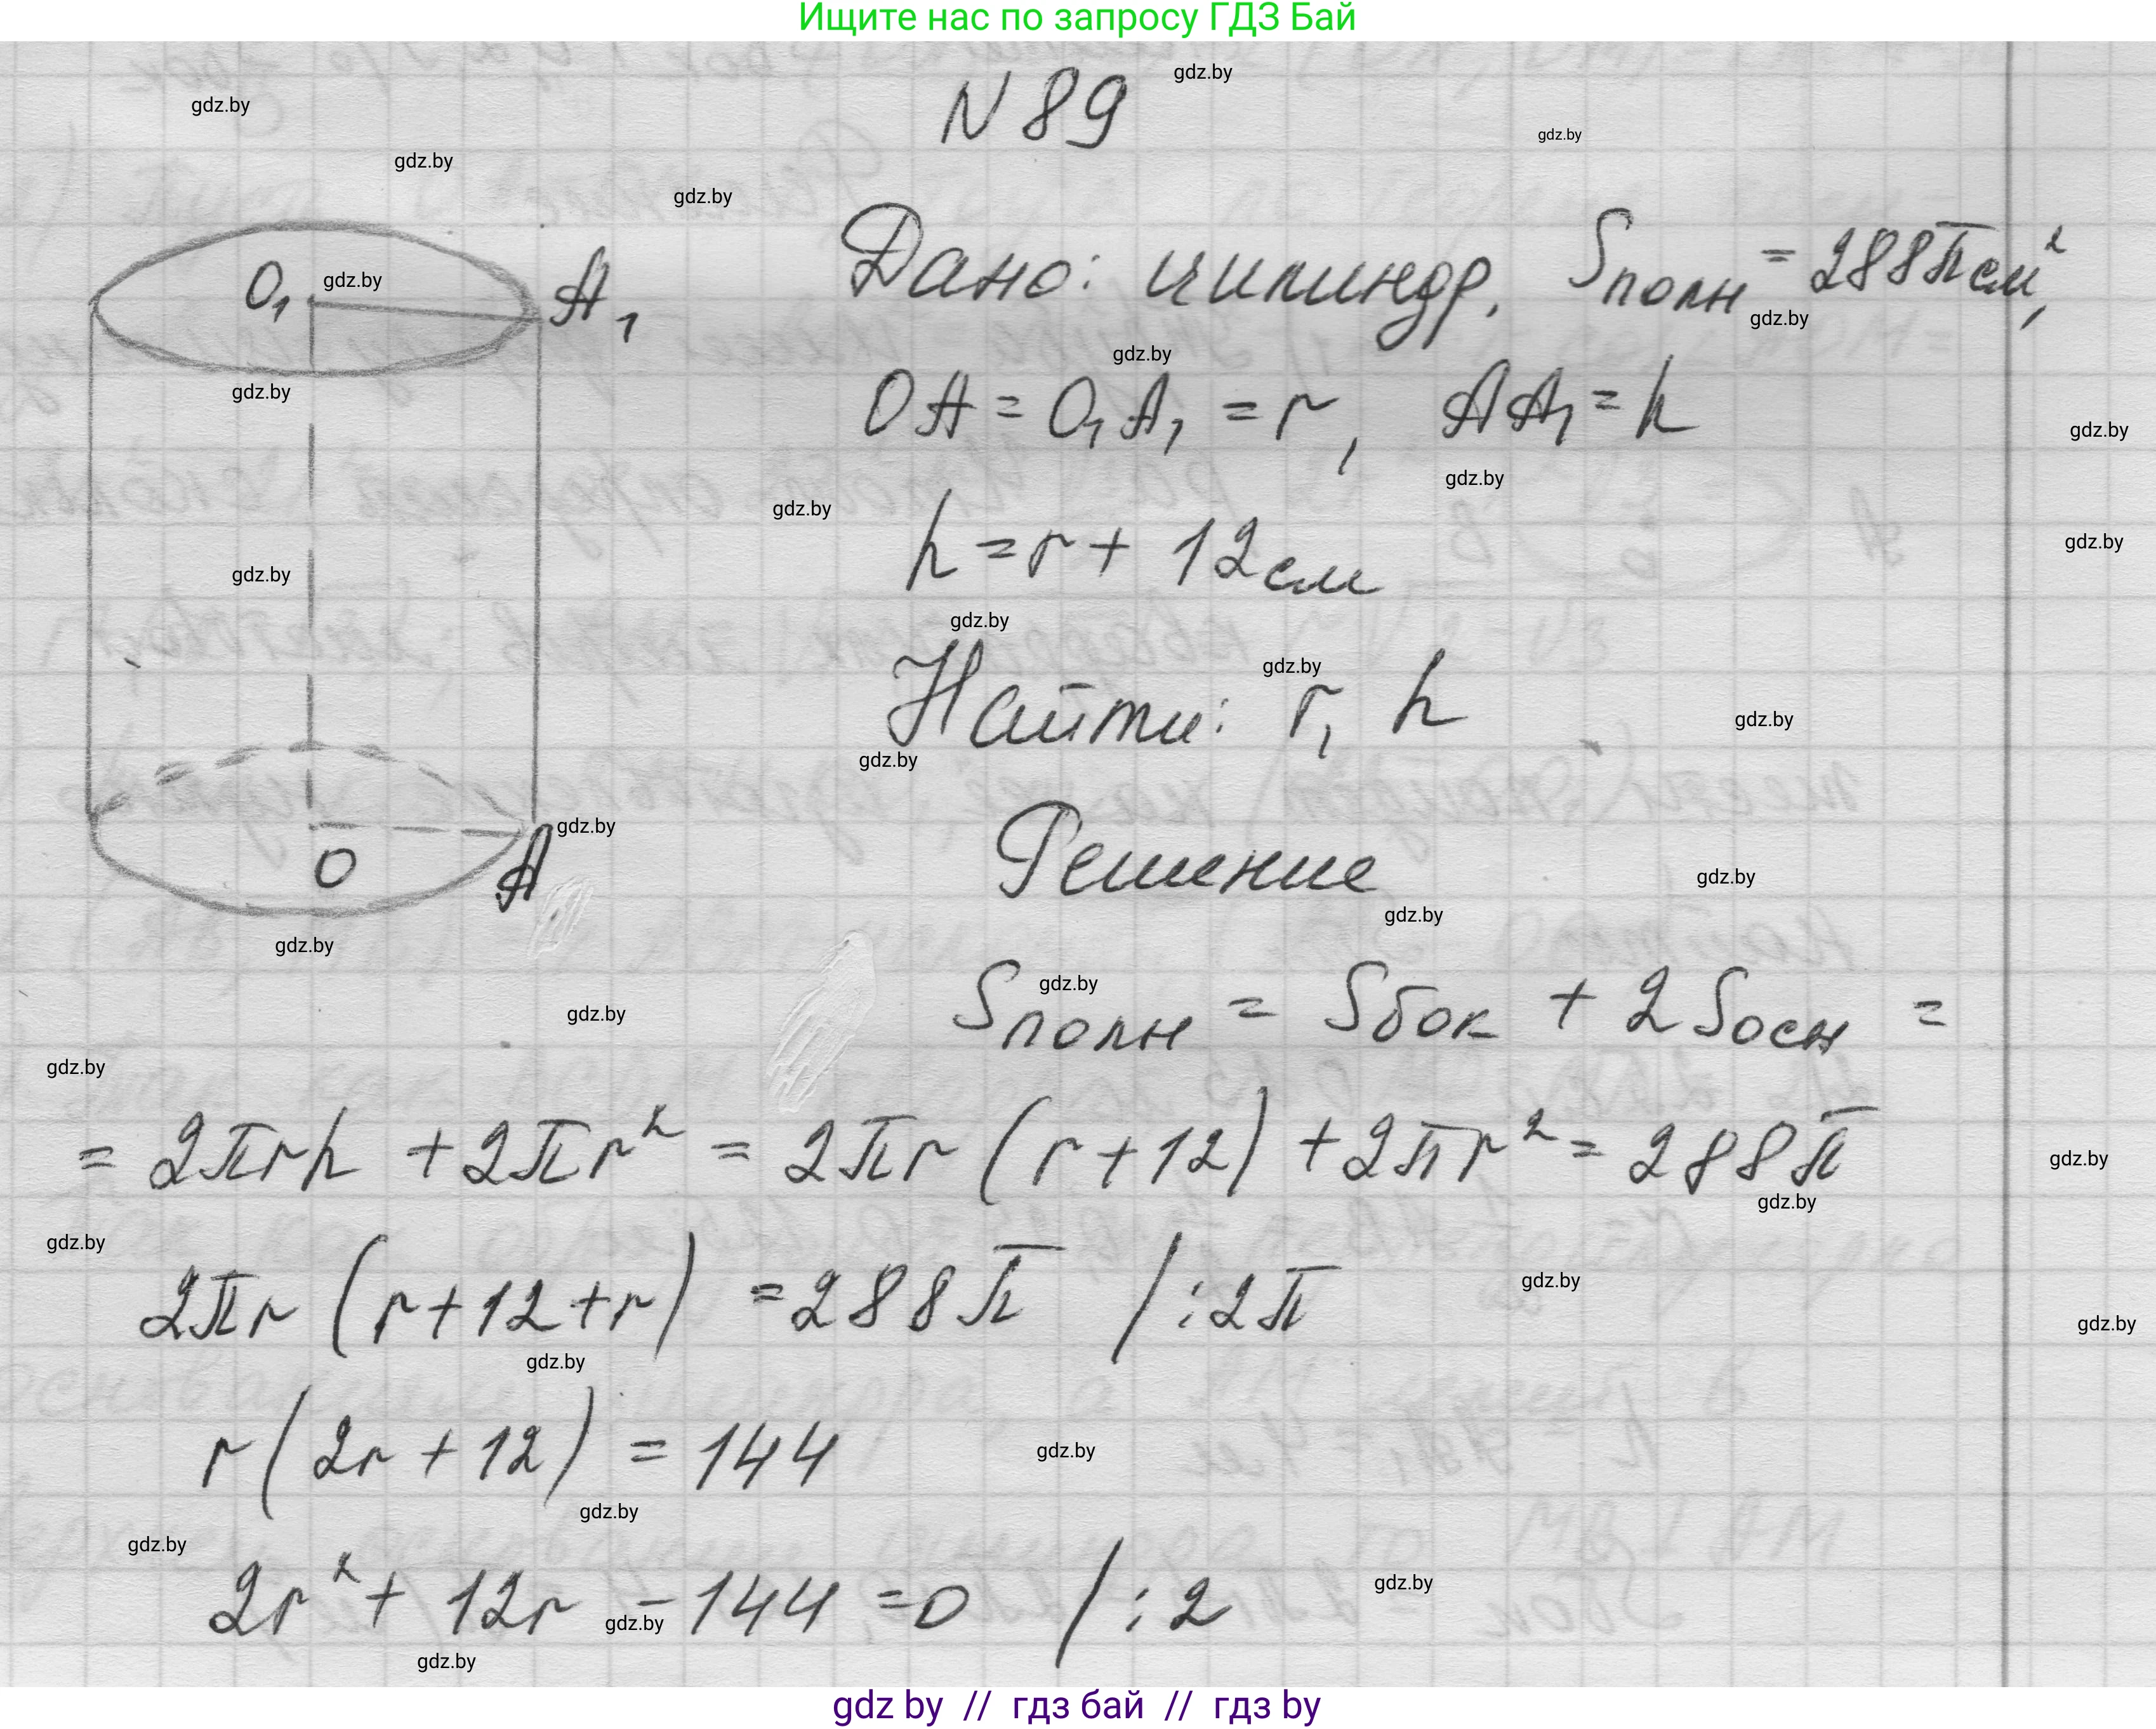 Ищите нас по запросу ГДЗ Бай
N 89
Дано: цилиндр, Sполн = 288π см²,
OA = O₁A₁ = r, AA₁ = h
h = r + 12 см
Найти: r, h
Решение
O₁ A₁
O A
Sполн = Sбок + 2Sосн =
= 2πrh + 2πr² = 2πr (r + 12) + 2πr² = 288π
2πr (r + 12 + r) = 288π /:2π
r (2r + 12) = 144
2r² + 12r - 144 = 0 /:2
gdz by // гдз бай // гдз by
gdz.by